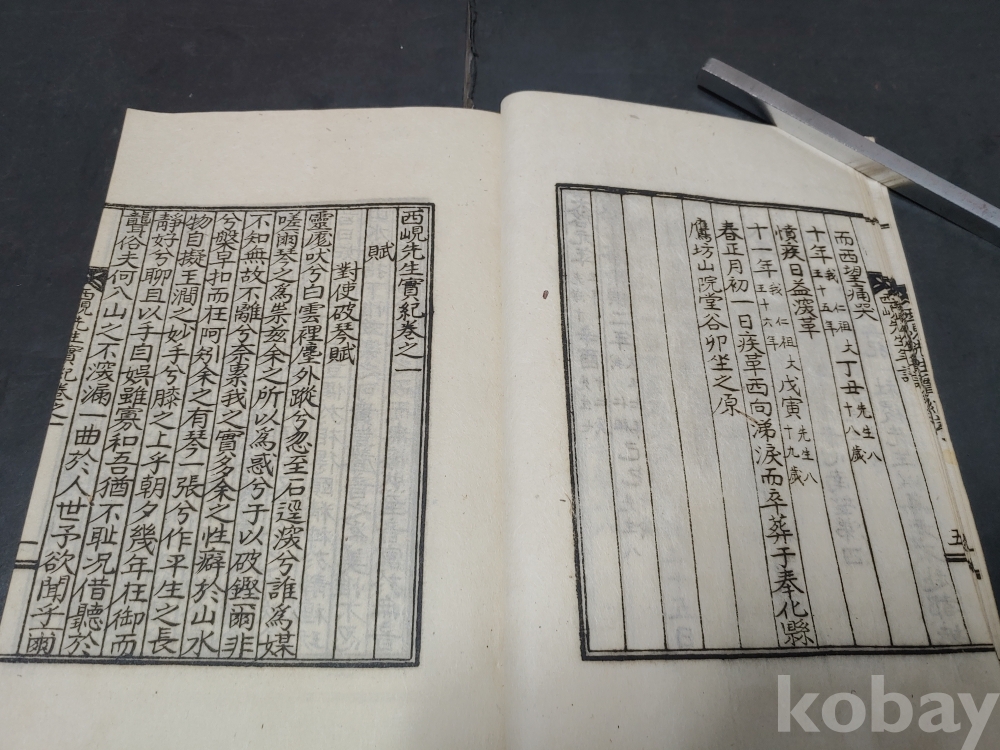 而西望痛哭
十年 我仁祖大王十五年 丁丑 先生八十八歲
憤疾日益深革
十一年 我仁祖大王十六年 戊寅 先生八十九歲
春正月初一日疾革西向涕淚而卒葬于奉化縣
鷹坊山院堂谷卯坐之原
五
西峴先生實紀卷之一
賦
對使破琴賦
靈魘吠兮白雲裡塵外蹤兮忽至石逕深兮誰為媒
嗟爾琴之為祟玆余之所以為慼兮于以破鏗爾非
不知無故不離兮奈棄我之實多余之性癖於山水
兮槃阜扣而在阿矧余之有琴一張兮作平生之長
物自擬王澗之妙手兮膝之上乎朝夕幾年在御而
靜好兮聊且以手曰娛雖寡和吾猶不恥况借聽於
聾俗夫何入山之不深漏一曲於人世予欲聞乎爾
西峴先生實紀卷之一